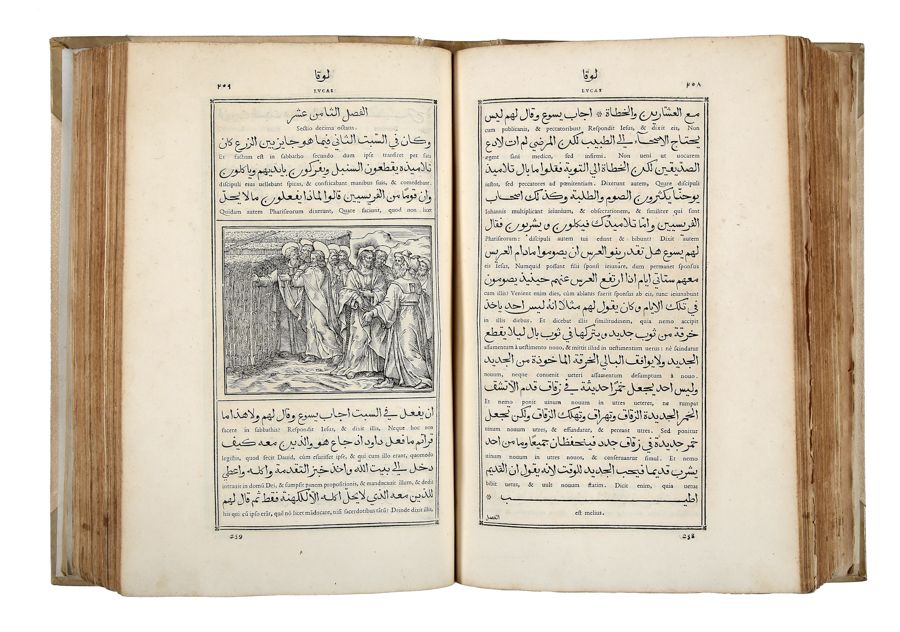 لوقا
٢٥٨
LVCAS
مع العشارين والخطاة * اجاب يسوع وقال لهم ليس
cum publicanis, & peccatoribus? Respondit Iesus, & dixit eis, Non
يحتاج الاصحاء الى الطبيب لكن المرضى لم ات لادع
egent sani medico, sed infirmi. Non ueni ut uocarem
الصديقين لكن الخطاة الى التوبة فقلوا ما بال تلاميد
iustos, sed peccatores ad pœnitentiam. Dixerunt autem, Quare discipuli
يوحنا يكثرون الصوم والطلبة وكذلك اصحاب
Iohannis multiplicant ieiunium, & obsecrationem, & similiter qui sunt
الفريسيين واما تلاميدك فيكلون ويشربون فقال
Phariseorum: discipuli autem tui edunt & bibunt? Dixit autem
لهم يسوع هل تقدر بنو العرس ان يصوموا مادام العريس
eis Iesus, Numquid possunt filii sponsi ieiunare, dum permanet sponsus
معهم ستاتي ايام اذا ارتفع العرس عنهم حينيذ يصومون
cum illis? Venient enim dies, cùm ablatus fuerit sponsus ab eis, tunc ieiunabunt
في تلك الايام وكان يقول لهم مثلا انه ليس احد ياخذ
in illis diebus. Et dicebat illis similitudinem, quia nemo accipit
خرقة من ثوب جديد ويتركها في ثوب بال ليلا يقطع
assumentum à uestimento nouo, & mittit illud in uestimentum uetus: ne scindatur
الجديد ولا يوافق البالي الخرقة الماخوذة من الجديد
nouum, neque conuenit ueteri assumentum desumptum à nouo.
وليس احد يجعل خمرا حديثة في زقاق قدم لا تنشف
Et nemo ponit uinum nouum in utres ueteres, ne rumpat
الخمر الجديدة الزقاق وتهراق وتهلك الزقاق ولكن تجعل
uinum nouum utres, & effundatur, & pereant utres. Sed ponitur
خمر جديدة في زقاق جدد فينحفظان جميعا وما من احد
uinum nouum in utres nouos, & conseruantur simul. Et nemo
يشرب قديما فيحب الجديد للوقت لانه يقول ان القديم
bibit uetus, & uult nouum statim. Dicit enim, quia uetus
اطيب *
est melius.
الفصل
258
لوقا
٢٥٩
LVCAS
الفصل الثامن عشر
Sectio decima octaua.
وكان في السبت الثاني فيما هو جايز بين الزرع كان
Et factum est in sabbatho secundo dum ipse transiret per sata
تلاميذه يقطعون السنبل ويفركون بايديهم وياكلون
discipuli eius uellebant spicas, & confricabant manibus suis, & comedebant.
وان قوما من الفريسيين قالوا لماذا يفعلون ما لا يحل
Quidam autem Phariseorum dixerunt, Quare faciunt, quod non licet
ان يفعل في السبت اجاب يسوع وقال لهم ولا هذا ما
facere in sabbathis? Respondit Iesus, & dixit illis, Neque hoc non
قراتم ما فعل داود اذ جاع هو والذين معه كيف
legistis, quod fecit Dauid, cùm esuriisset ipse, & qui cum illo erant, quomodo
دخل الى بيت الله واخذ خبز التقدمة واكله واعطى
intrauit in domũ Dei, & sumpsit panem propositionis, & manducauit illum, & dedit
للذين معه الذي لا يحل اكله الا للكهنة فقط ثم قال لهم
his qui cũ ipso erãt, quẽ nõ licet mãducare, nisi sacerdotibus tãtũ? Deinde dixit illis,
259